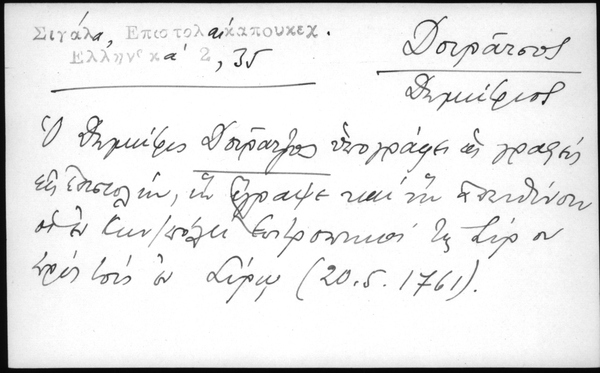 Σιγάλα, Επιστολαὶκαπουκεχ.
Ελληνικα' 2, 35
Δοιράτσος
Δημήτριος
Ὁ Δημήτρις Δοιράτζας ὑπογράφει ὡς γραφεύς
ἐπιστολήν, ἣν ἔγραψε καὶ ἣν ἀπευθύνου
οἱ ἐν Κων/πόλει ἐπίτροποι τῆς Σίφνου
πρὸς τοὺς ἐν Σίφνῳ (20.5.1761).